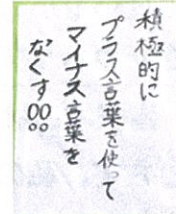 積極的に
プラス言葉を使って
マイナス言葉を
なくす00